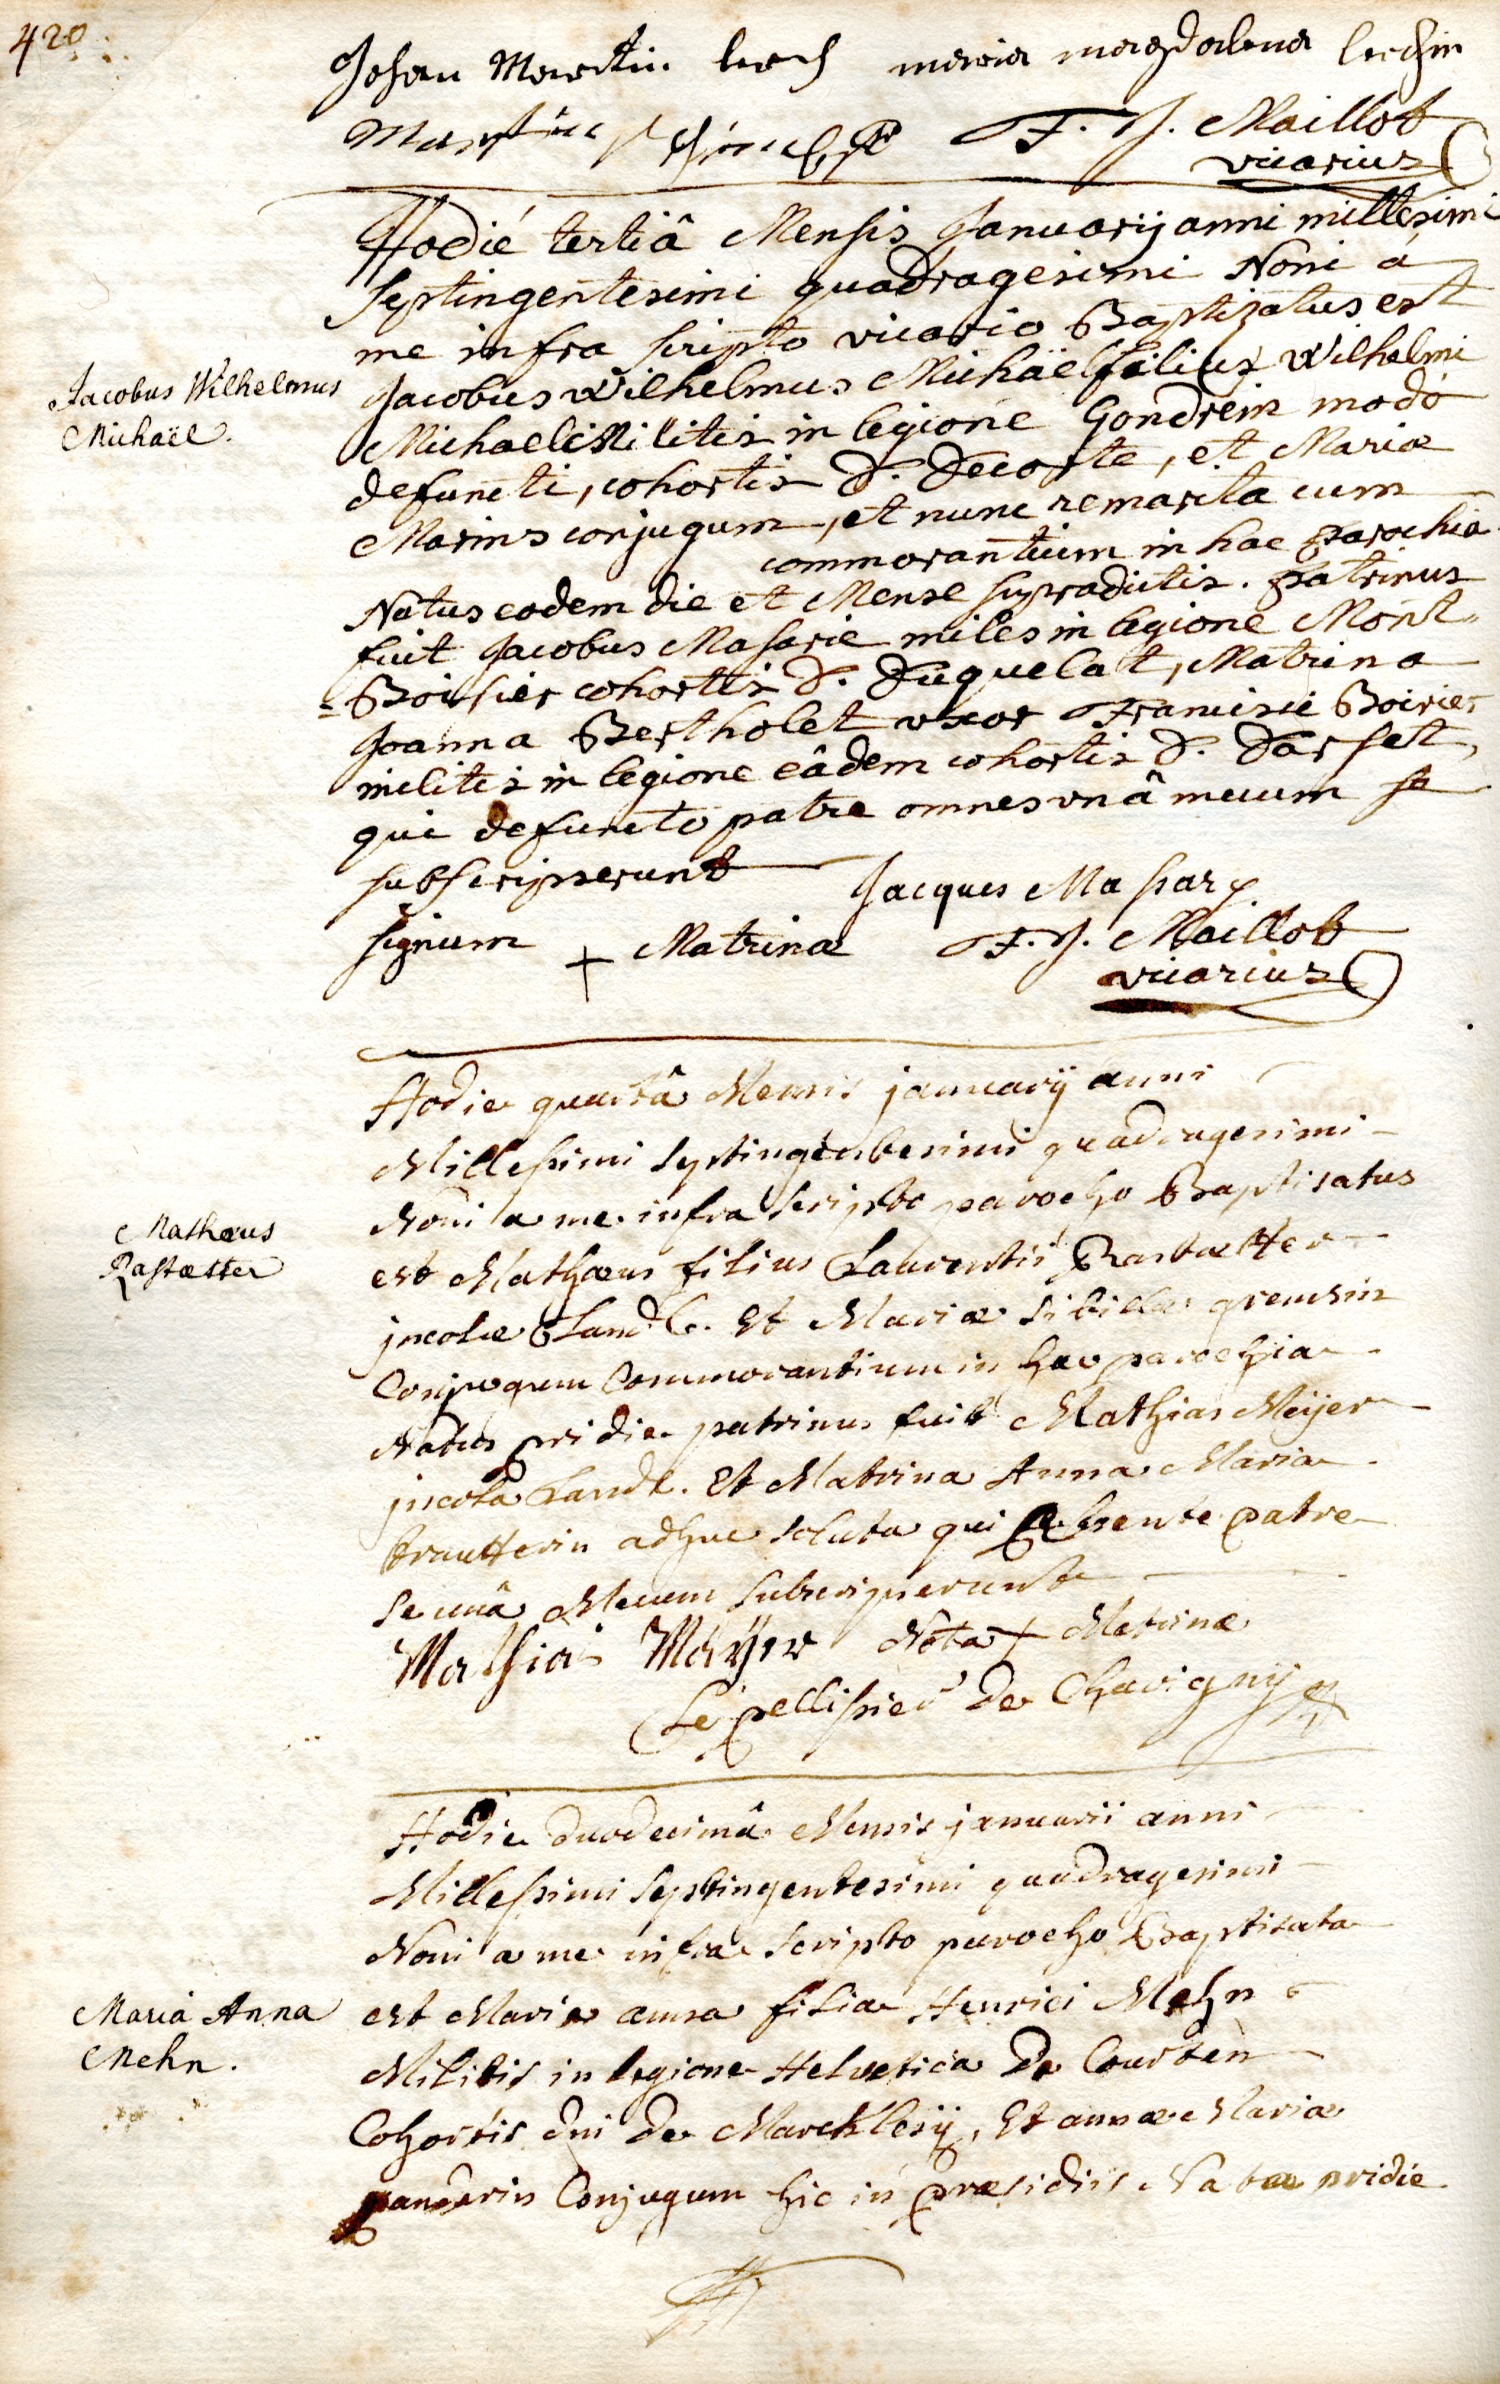 420
Johan Martin lerch maria magdalena lerchin
F. J. Maillot
vicarius
Hodié tertiâ Mensis Januarij anni millesimi
septingentesimi quadragesimi Noni á
me infra scripto vicario Baptizatus est
Jacobus Wilhelmus
Michaël.
Jacobus Wilhelmus Michaël filius Wilhelmi
Michaelis Militis in legione Gondrein modó
defuncti, cohortis D. Decoste, et Mariæ
Marins conjugum, et nunc remarita cum
commorantium in hac parochia
Natus eodem die et Mense supradictis. patrinus
fuit Jacobus Masarie miles in legione Mont
= Boissier cohortis D. Duquelat, Matrina
Joanna Bertholet uxor Francisci Boirier
militis in legione eâdem cohortis D. Darset,
qui defuncto patre omnes unâ mecum se
subscripserunt
Jacques Masary
signum + Matrinæ F. J. Maillot
vicarius
Hodie quartâ Mensis januarij anni
Millesimi septingentesimi quadragesimi
Noni a me infra scripto parocho Baptisatus
Mathæus
Rastætter
est Mathæus filius Laurentii Rastætter
jncolæ Land. Et Mariæ Sibillæ gremsin
Conjugum Commorantium in hac parochia
Natus pridie patrinus fuit Mathias Meijer
jncola Land. Et Matrina Anna Maria
trautterin adhuc soluta qui absente patre
se unâ Mecum subscripserunt
Mathias Mayer Nota + Matrinæ
Le pellissier de Chavignij
Hodie duodecimâ Mensis januarii anni
Millesimi septingentesimi quadragesimi
Noni a me infra scripto parocho Baptisata
Maria Anna
Mehn.
est Maria anna filia Henrici Mehn
Militis in legione Helvetica De Courten
Cohortis dni de Marcklesij, Et annæ Maria
panderin Conjugum hic in præsidiis Nata pridie